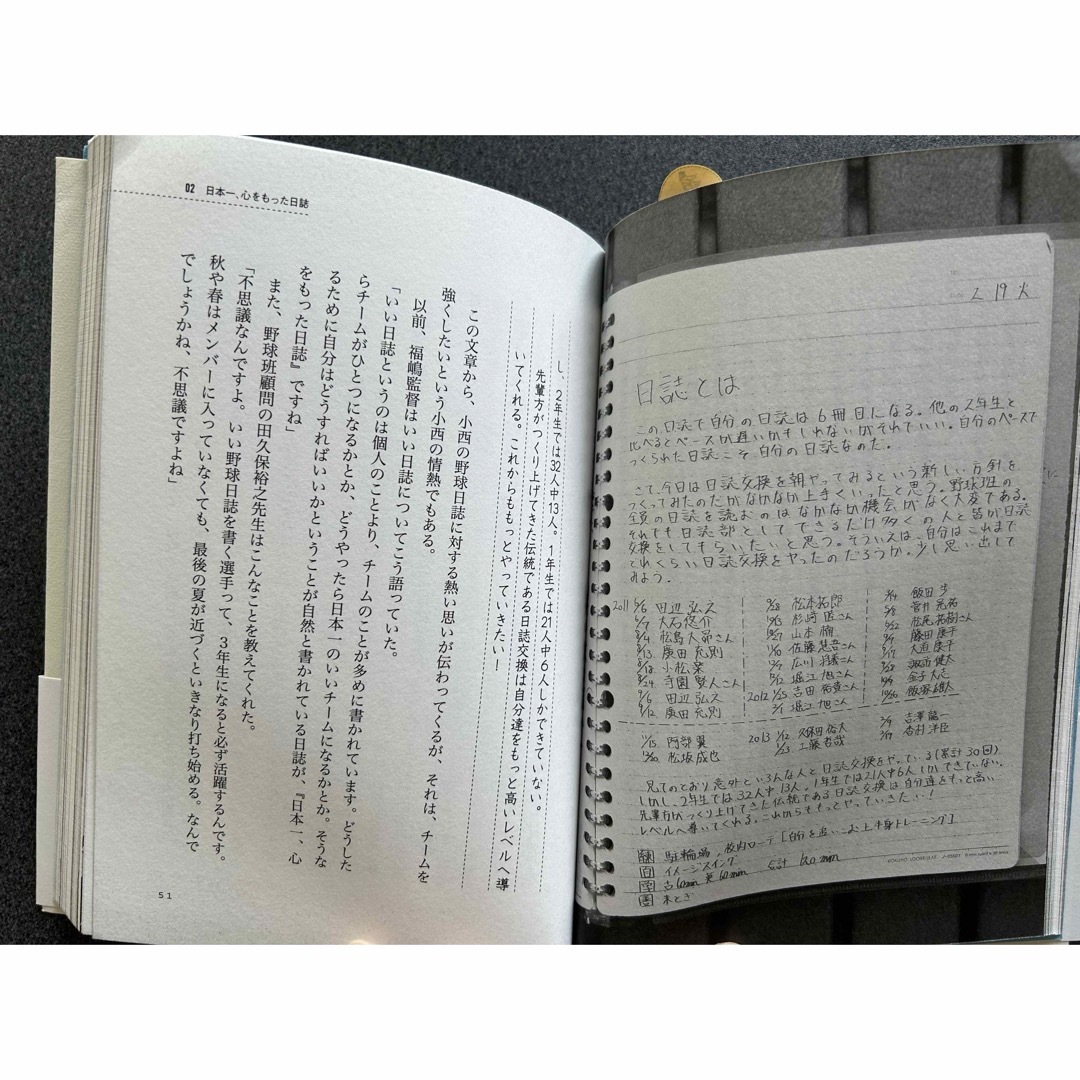 02 日本一、心をもった日誌
し、2年生では32人中13人。1年生では21人中6人しかできていない。
先輩方がつくり上げてきた伝統である日誌交換は自分達をもっと高いレベルへ導
いてくれる。これからももっとやっていきたい！
この文章から、小西の野球日誌に対する熱い思いが伝わってくるが、それは、チームを
強くしたいという小西の情熱でもある。
以前、福嶋監督はいい日誌についてこう語っていた。
「いい日誌というのは個人のことより、チームのことが多めに書かれています。どうした
らチームがひとつになるかとか、どうやったら日本一のいいチームになるかとか。そうな
るために自分はどうすればいいかということが自然と書かれている日誌が、『日本一、心
をもった日誌』ですね」
また、野球班顧問の田久保裕之先生はこんなことを教えてくれた。
「不思議なんですよ。いい野球日誌を書く選手って、3年生になると必ず活躍するんです。
秋や春はメンバーに入っていなくても、最後の夏が近づくといきなり打ち始める。なんで
でしょうかね、不思議ですよね」
51
2 19 火
日誌とは
この日誌で自分の日誌は6冊目になる。他の2年生と
比べるとペースが遅いかもしれないがそれでいい。自分のペースで
つくられた日誌こそ自分の日誌なのだ。
さて、今日は日誌交換を朝やってみるという新しい方針を
つくってみたのだがなかなか上手くいったと思う。野球班の
全員の日誌を読むのはなかなか機会がなく大変である。
それでも日誌部としてできるだけ多くの人と皆が日誌
交換をしてもらいたいと思う。そういえば、自分はこれまで
どれくらい日誌交換をやったのだろうか。少し思い出して
みよう。
2011 5/6 田辺 弘之
6/7 大石悠介
8/4 松島大昂さん
8/13 廣田充則
8/18 小松栞
8/24 寺園賢人さん
9/6 田辺弘之
9/12 廣田充則
9/28 松本拓郎
山本 楠
佐藤慧吾さん
広川翔森さん
堀江旭さん
2012 吉田 裕貴さん
堀江旭さん
飯田 歩
菅井晃祐
松尾祐樹さん
藤田康平
大道康平
諏訪健太
金子大志
飯塚雄太
1/15 阿部翼
松坂成也
2013 1/12 久保田悠大
1/23 工藤香哉
吉澤龍一
杏村洋臣
見てのとおり意外といろんな人と日誌交換をやっている(累計30回)
しかし、2年生では32人中13人。1年生では21人中6人しかできていない。
先輩方がつくり上げてきた伝統である日誌交換は自分達をもっと高い
レベルへ導いてくれる。これからももっとやっていきたい！
練 駐輪場、校内ローテ [自分を追いこむ上半身トレーニング]
自 イメージスイング
学 古60min 英60min 合計 120min
米とぎ